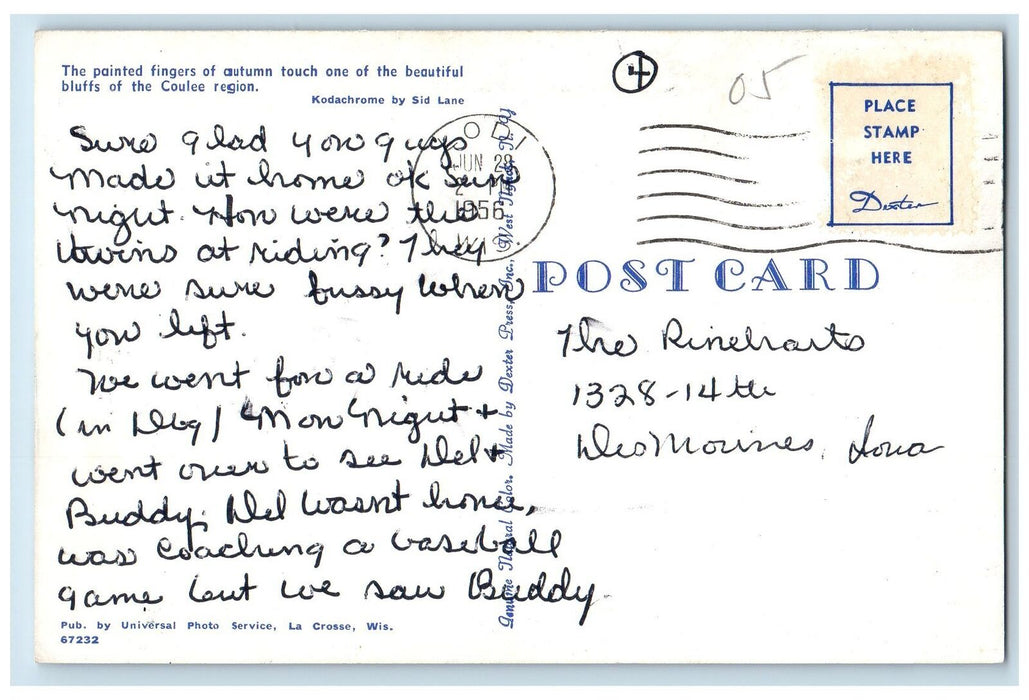 The painted fingers of autumn touch one of the beautiful
bluffs of the Coulee region.
Kodachrome by Sid Lane
Sure glad you guys
made it home ok Sun
night. How were the
twins at riding? They
were sure fussy when
you left.
We went for a ride
(in Dug) Mon night +
went over to see Del +
Buddy. Del wasnt home,
was coaching a baseball
game but we saw Buddy
Pub. by Universal Photo Service, La Crosse, Wis.
67232
Genuine Natural Color. Made by Dexter Press, Inc., West Nyack, N. Y.
4
05
LODI
JUN 28
2 PM
1956
WIS.
PLACE
STAMP
HERE
Dexter
POST CARD
The Rineharts
1328-14th
Des Moines, Iowa